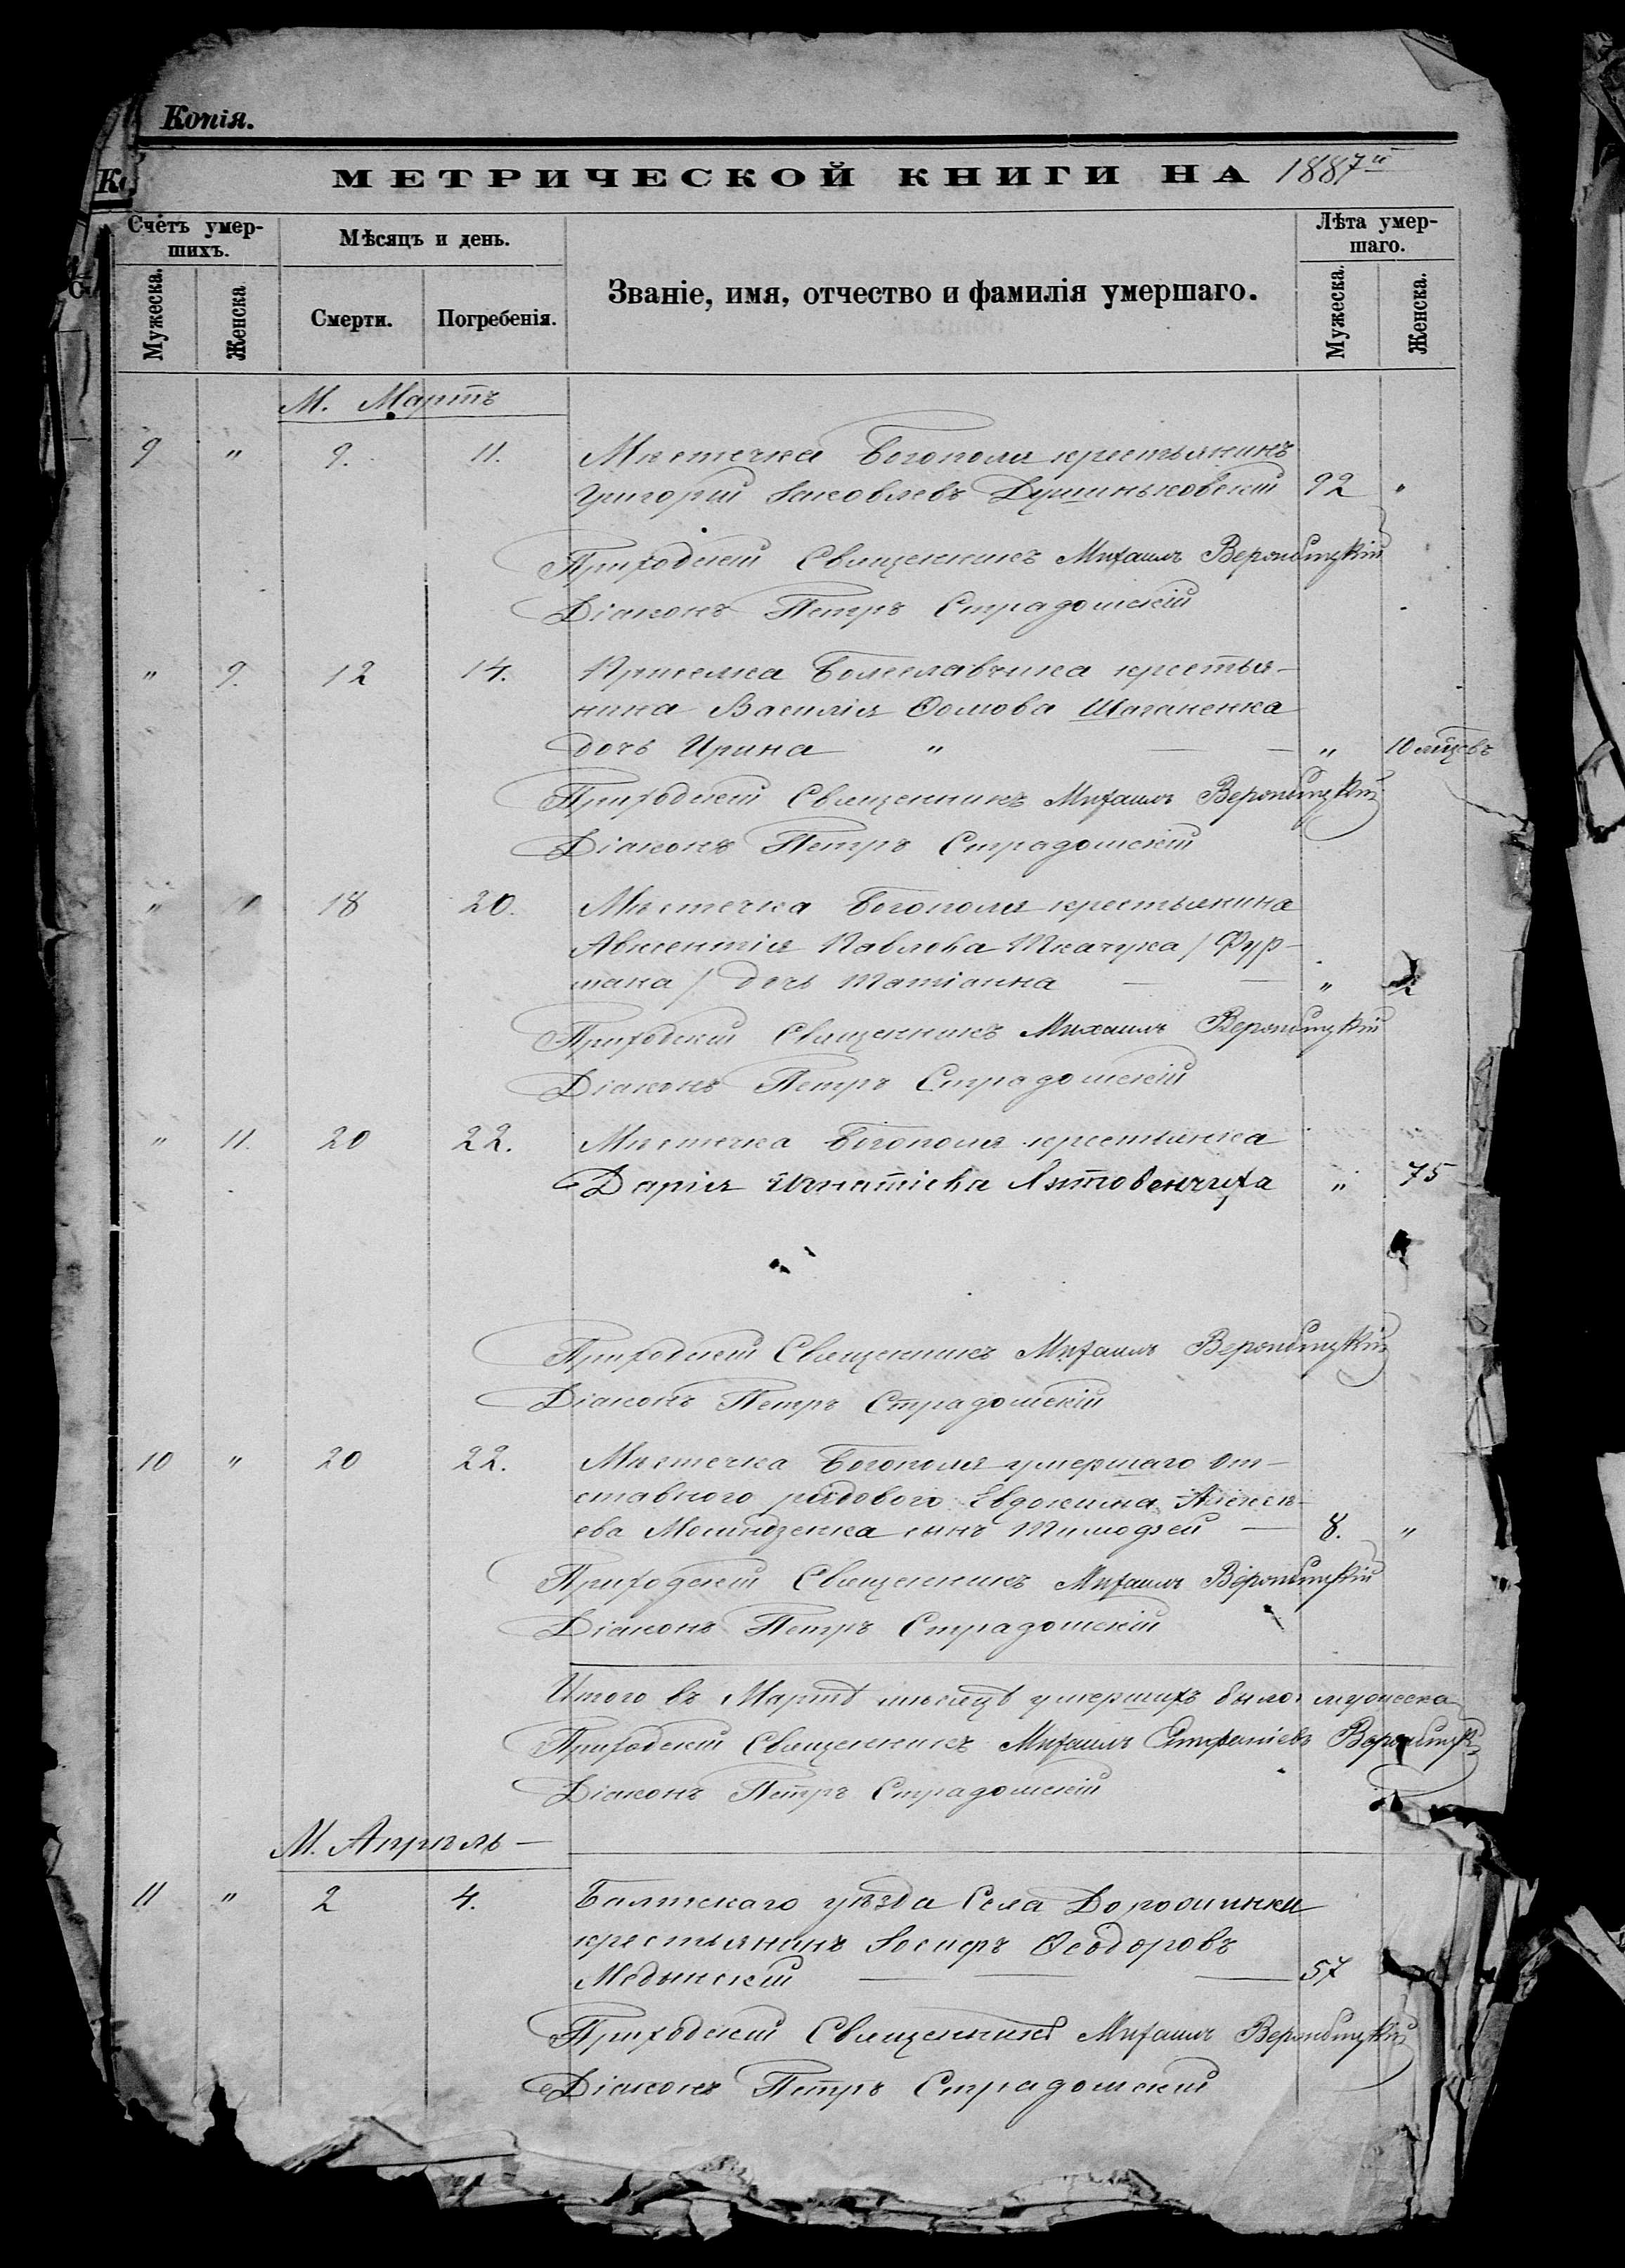 Копія.
МЕТРИЧЕСКОЙ КНИГИ НА 1887й
Счетъ умер-
шихъ.
Мѣсяцъ и день.
Званіе, имя, отчество и фамилія умершаго.
Лѣта умер-
шаго.
Мужеска.
Женска
Смерти.
Погребенія.
Мужеска.
Женска.
М. Мартъ
9 " 9. 11. Мѣстечка Богополя крестьянинъ
Григорій Іаковлевъ Душиньковскій 92 "
Приходскій Священникъ Михаилъ
Діаконъ Петръ Страдомскій
" 9. 12 14. Приселка Болеславчика крестья-
нина Василія Ѳомова
дочь Ирина " — — " 10 мѣсѣвъ
Приходскій Священникъ Михаилъ
Діаконъ Петръ Страдомскій
" 10 18 20. Мѣстечка Богополя крестьянина
Авксентія Павлова Ткачука / Фур-
мана / дочь Татіанна — — " 2
Приходскій Священникъ Михаилъ
Діаконъ Петръ Страдомскій
" 11. 20 22. Мѣстечка Богополя крестьянка
Дарія Игнатіева Литовенчиха " 75
Приходскій Священникъ Михаилъ
Діаконъ Петръ Страдомскій
10 " 20 22. Мѣстечка Богополя умершаго от-
ставного рядового Евдокима Алексѣ-
ева сынъ Тимофей — 8. "
Приходскій Священникъ Михаилъ
Діаконъ Петръ Страдомскій
Итого въ Мартѣ мѣсяцѣ умершихъ было: мужеска
Приходскій Священникъ Михаилъ
Діаконъ Петръ Страдомскій
М. Апрѣль —
11 " 2 4. Балтскаго уѣзда Села Дорошинки
крестьянинъ Іосифъ Ѳеодоровъ
Медынскій — — — 57
Приходскій Священникъ Михаилъ
Діаконъ Петръ Страдомскій